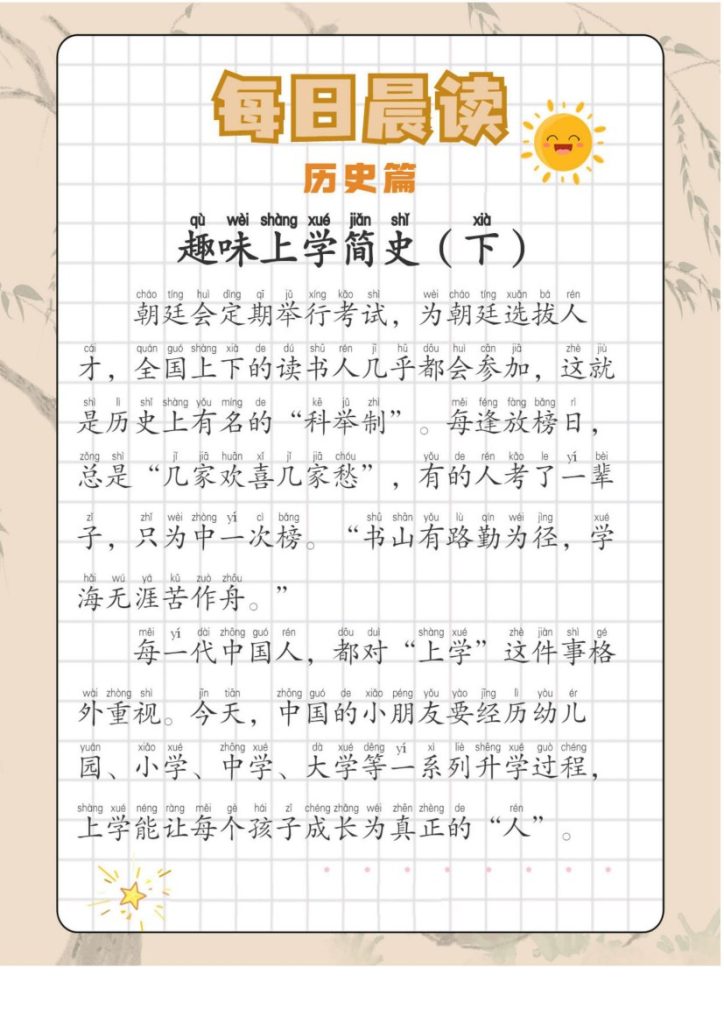 每日晨读
历史篇
qù wèi shàng xué jiǎn shǐ xià
趣味上学简史（下）
cháo tíng huì dìng qī jǔ xíng kǎo shì wèi cháo tíng xuǎn bá rén
朝廷会定期举行考试，为朝廷选拔人
cái quán guó shàng xià de dú shū rén jǐ hū dōu huì cān jiā zhè jiù
才，全国上下的读书人几乎都会参加，这就
shì lì shǐ shàng yǒu míng de kē jǔ zhì měi féng fàng bǎng rì
是历史上有名的“科举制”。每逢放榜日，
zǒng shì jǐ jiā huān xǐ jǐ jiā chóu yǒu de rén kǎo le yí bèi
总是“几家欢喜几家愁”，有的人考了一辈
zǐ zhǐ wèi zhòng yí cì bǎng shū shān yǒu lù qín wéi jìng xué
子，只为中一次榜。“书山有路勤为径，学
hǎi wú yá kǔ zuò zhōu
海无涯苦作舟。”
měi yí dài zhōng guó rén dōu duì shàng xué zhè jiàn shì gé
每一代中国人，都对“上学”这件事格
wài zhòng shì jīn tiān zhōng guó de xiǎo péng yǒu yào jīng lì yòu ér
外重视。今天，中国的小朋友要经历幼儿
yuán xiǎo xué zhōng xué dà xué děng yí xì liè shēng xué guò chéng
园、小学、中学、大学等一系列升学过程，
shàng xué néng ràng měi gè hái zǐ chéng zhǎng wéi zhēn zhèng de rén
上学能让每个孩子成长为真正的“人”。